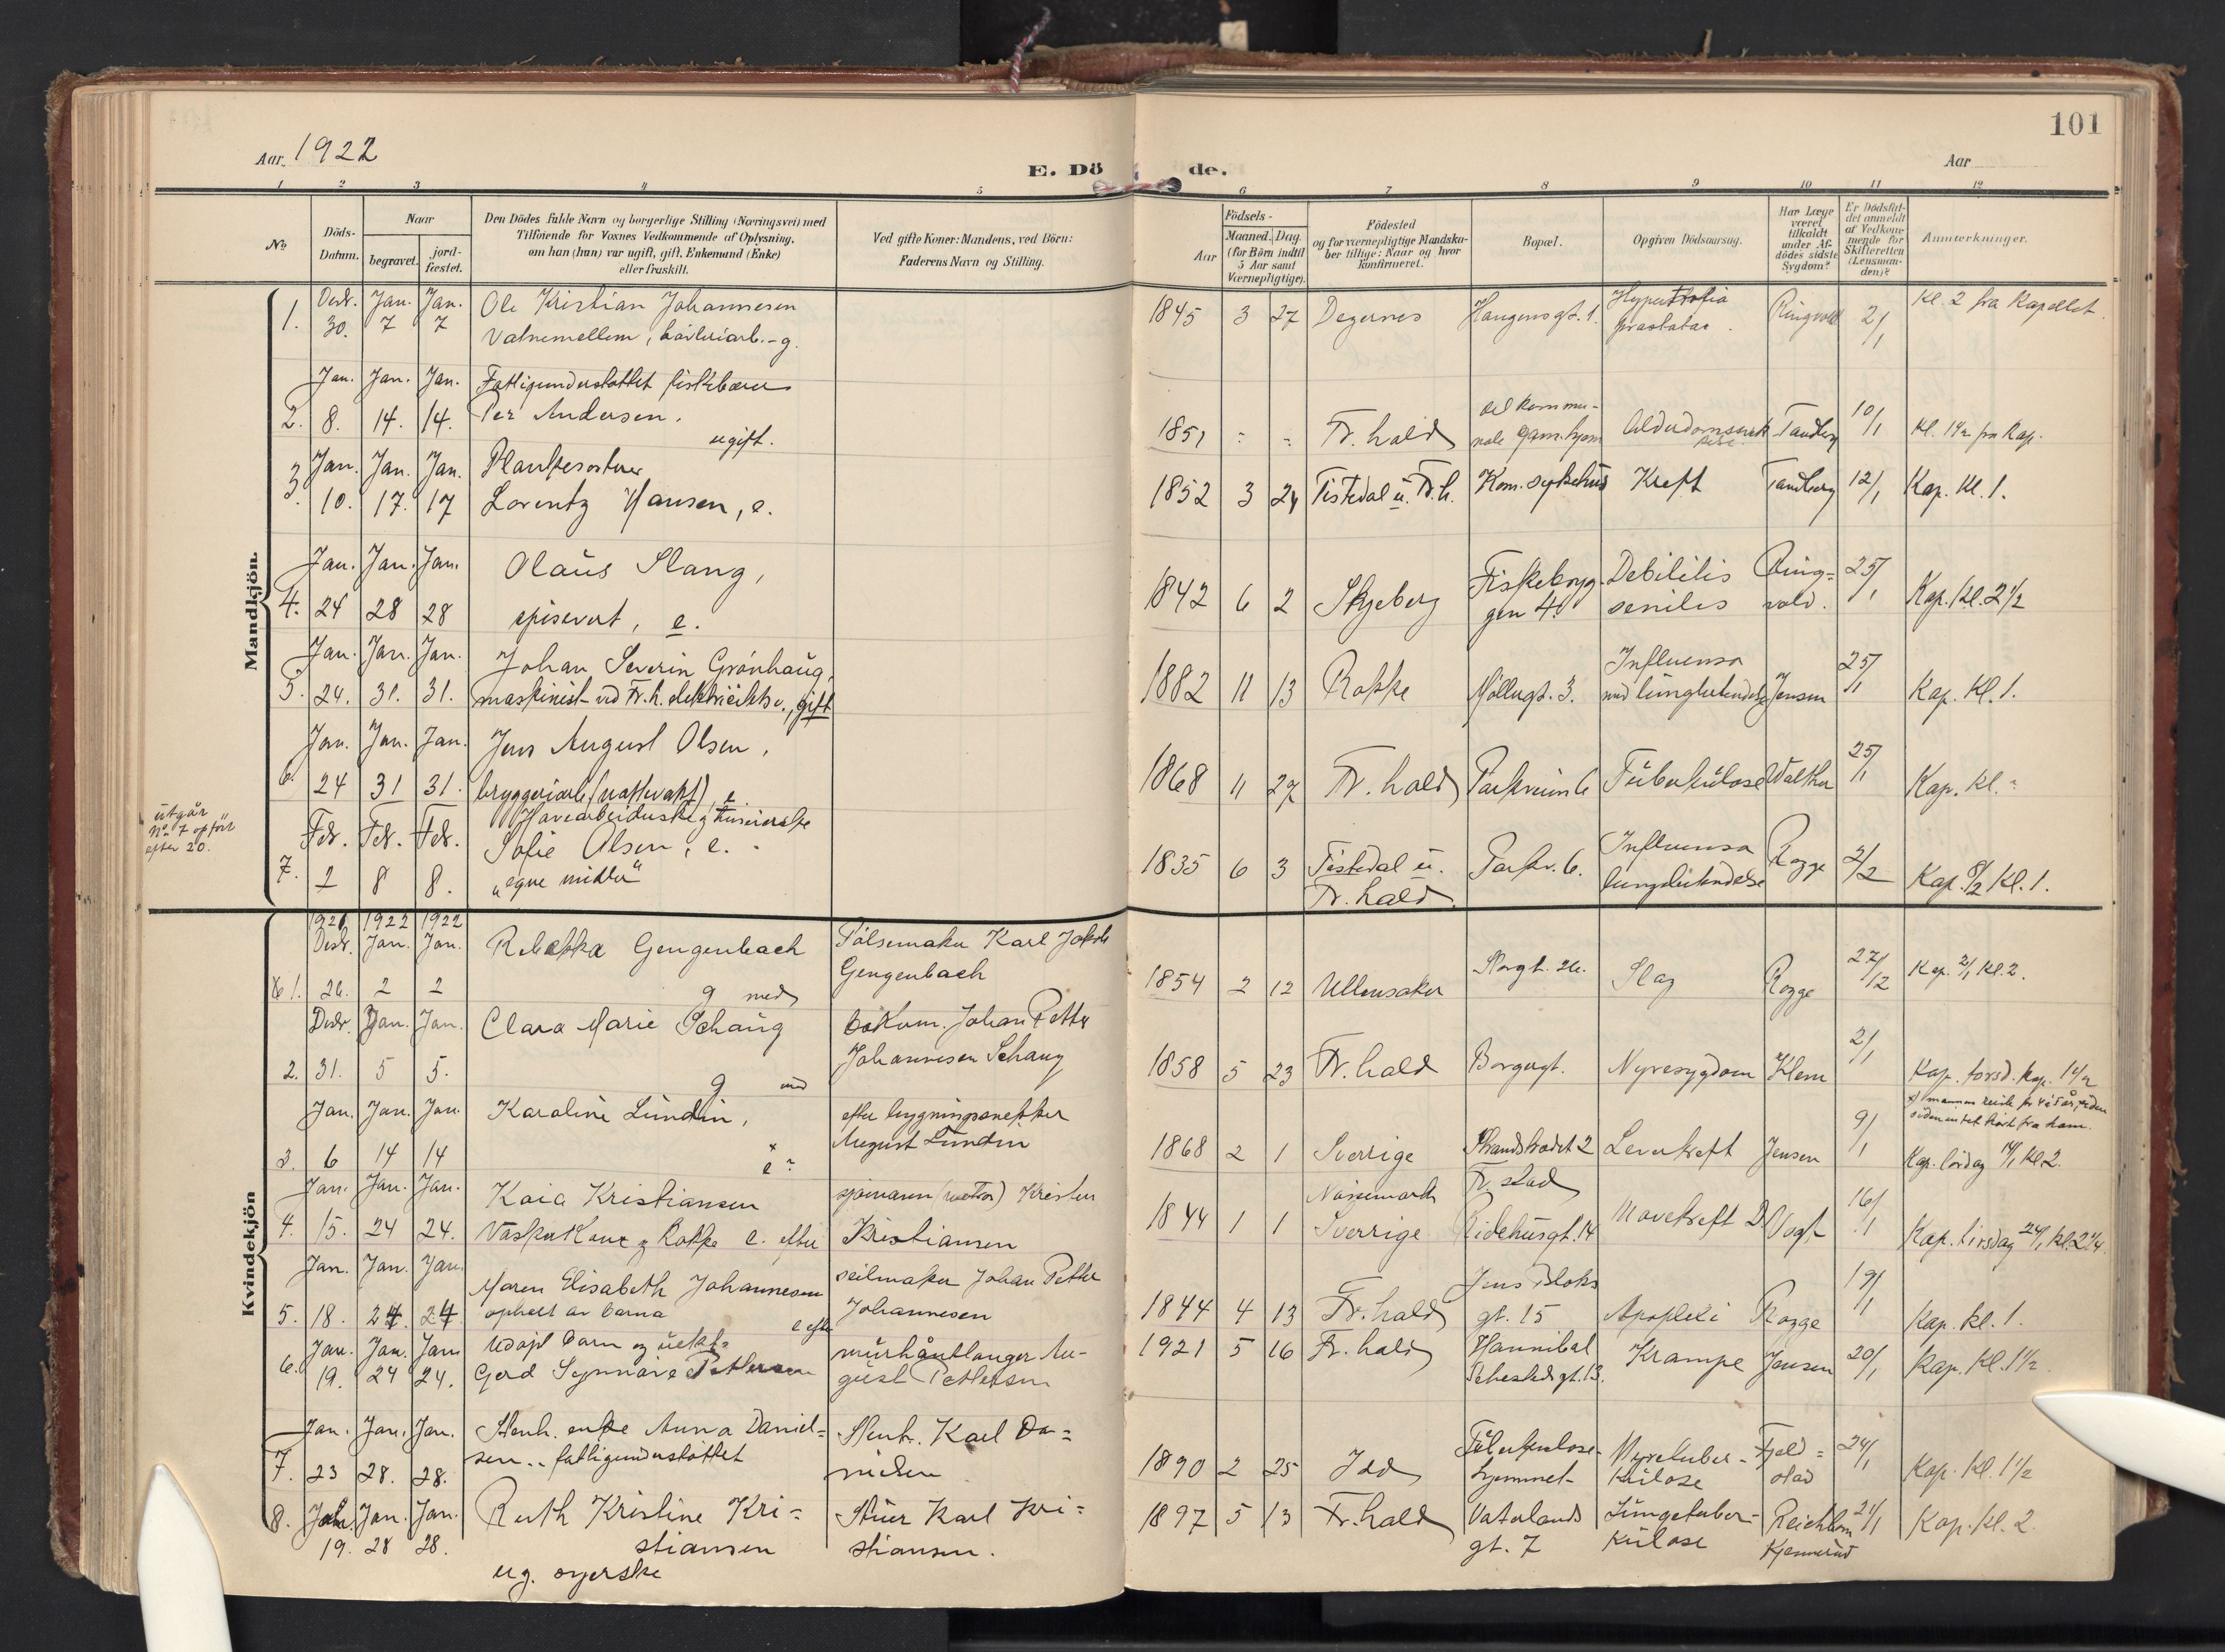 101
Aar 1922
E. Dö de.
Aar
1 2 3 4 5 6 7 8 9 10 11 12
No
Döds-Datum.
Naar
begravet. jord-fæstet.
Den Dödes fulde Navn og borgerlige Stilling (Næringsvei) med
Tilföiende for Voxnes Vedkommende af Oplysning,
om han (hun) var ugift, gift, Enkemand (Enke)
eller fraskilt.
Ved gifte Koner: Mandens, ved Börn:
Faderens Navn og Stilling.
Födsels-
Aar Maaned. Dag.
(for Börn indtil
5 Aar samt
Værnepligtige).
Födested
og for værnepligtige Mandska-
ber tillige: Naar og hvor
konfirmeret.
Bopæl.
Opgiven Dödsaarsag.
Har Læge
været
tilkaldt
under Af-
dödes sidste
Sygdom?
Er Dödsfal-
det anmeldt
af Vedkom-
mende for
Skifteretten
(Lensman-
den)?
Anmærkninger.
Mandkjön.
1. Desbr. 30. Jan. 7 Jan. 7
Ole Kristian Johannesen
Vatnemellem, g.
1845 3 27 Degernes Haugensgt. 1. Hypertrofia prostatae. Ringvold 2/1 Kl. 2 fra Kapellet.
2. Jan. 8. Jan. 14. Jan. 14.
Fattigunderstøttet fiskebærer
Per Andersen.
ugift.
1851 Fr.hald del kommunale gam.hjem Tandberg 10/1 Kl. 1 1/2 fra Kap.
3. Jan. 10. Jan. 17. Jan. 17
Plankesorterer
Lorentz Hansen, e.
1852 3 24 Tistedal u. Fr.h. Kom. sykehus Kreft Tandberg 12/1 Kap. Kl. 1.
4. Jan. 24 Jan. 28 Jan. 28
Olaus Stang,
spisevert, e.
1842 6 2 Skjeberg Fiskebryggen 4 Debilitis senilis Ringvold. 25/1 Kap. Kl. 2 1/2
5. Jan. 24. Jan. 31. Jan. 31.
Johan Severin Grønhaug,
maskinist ved Fr.h. gift
1882 11 13 Rokke Møllergt. 3. Influensa med lungebetendelse Jensen 25/1 Kap. Kl. 1.
6. Jan. 24 Jan. 31 Jan. 31.
Jens August Olsen,
bryggeriarb. (nattevakt), e.
1868 11 27 Fr.hald Parkveien 6 Tuberkulose Walther 25/1 Kap. Kl.
utgår
No 7 opført
efter 20.
7. Febr. 2 Febr. 8 Febr. 8.
Havearbeiderske og huseierske
Sofie Olsen, e.
"egne midler"
1835 6 3 Tistedal u. Fr.hald Parkv. 6. Influensa lungebetendelse Rogge 2/2 Kap. 8/2 Kl. 1.
Kvindekjön
1. 1921 Desbr. 26. 1922 Jan. 2 1922 Jan. 2
Rebekka Gengenbach
g med
Pølsemaker Karl Jakob
Gengenbach
1854 2 12 Ullensaker Storgt. 26. Slag Rogge 27/12 Kap. 2/1 Kl. 2.
2. Desbr. 31. Jan. 5 Jan. 5.
Clara Marie Schaug
g med
Johan Petter
Johannesen Schaug
1858 5 23 Fr.hald Borgergt. Nyresygdom Klem 2/1 Kap. torsd. Kap. 1 1/2
3. Jan. 6 Jan. 14 Jan. 14
Karoline Lundin,
x
e?
efter bygningssnekker
August Lundin
1868 2 1 Sverrige Strandstrædet 2 Leverkreft Jensen 9/1
x) mannen reiste for 4 à 5 år siden
siden intet hørt fra ham.
Kap. lørdag 14/1 Kl. 2.
4. Jan. 15. Jan. 24 Jan. 24.
Kaia Kristiansen
Vaskekone og Kokke e. efter
sjømann Kristen
Kristiansen
1844 1 1 Sverrige Fr.stad Ridehusgt. 14 Mavekreft Vogt 16/1 Kap. tirsdag 24/1 kl. 2 1/4.
5. Jan. 18. Jan. 24. Jan. 24
Maren Elisabeth Johannesen
opholdt av barna
e efter
seilmaker Johan Petter
Johannesen
1844 4 13 Fr.hald Jens Bloks gt. 15 Apopleksi Rogge 19/1 Kap. kl. 1.
6. Jan. 19. Jan. 24 Jan. 24.
Udøpt barn og uekte
Gerd Synnøve Pettersen
murhåntlanger August Pettersen
1921 5 16 Fr.hald Hannibal Sehestedsgt. 13. Krampe Jensen 20/1 Kap. Kl. 1 1/2.
7. Jan. 23 Jan. 28. Jan. 28.
Stenh. enke Anna Daniel=
sen.. fattigunderstøttet
Stenh. Karl Da=
nielsen
1890 2 25 Idd Tuberkulosehjemmet Nyretuberkulose Fjeldstad 24/1 Kap. Kl. 1 1/2
8. Jan. 19. Jan. 28 Jan. 28.
Ruth Kristine Kri=
stiansen
ug. syerske
Stuer Karl Kri=
stiansen.
1897 5 13 Fr.hald Vaterlands gt. 7 Lungetuberkulose Kjennerud 21/1 Kap. Kl. 2.